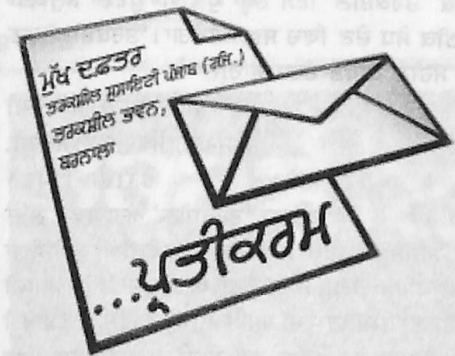 ਮੁੱਖ ਦਫ਼ਤਰ
ਤਰਕਸ਼ੀਲ ਸੁਸਾਇਟੀ ਪੰਜਾਬ (ਰਜਿ.)
ਤਰਕਸ਼ੀਲ ਭਵਨ,
ਬਰਨਾਲਾ
...ਪ੍ਰਤੀਕਰਮ